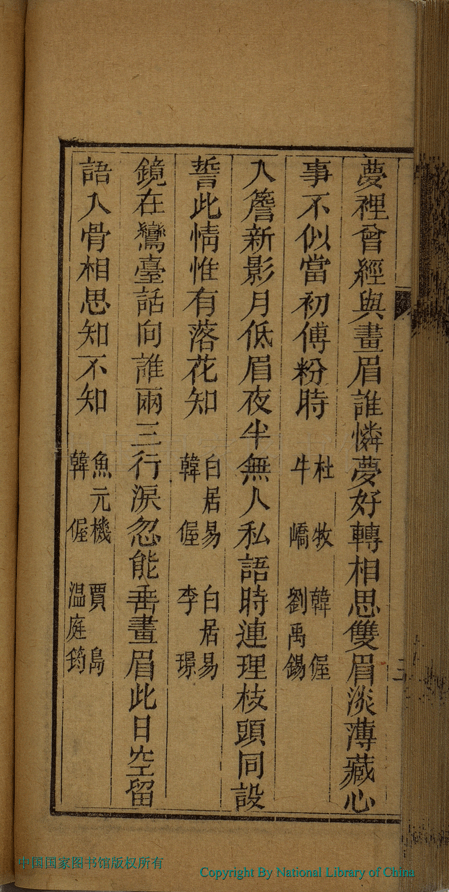 夢裡曾經與畫眉誰憐夢好轉相思雙眉淡薄藏心
事不似當初傅粉時 杜牧 韓偓
牛嶠 劉禹錫
入簷新影月低眉夜半無人私語時連理枝頭同設
誓此情惟有落花知 白居易 白居易
韓偓 李璟
鏡在鸞臺話向誰兩三行淚忽能垂畫眉此日空留
語入骨相思知不知 魚元機 賈島
韓偓 温庭筠
中国国家图书馆版权所有
Copyright By National Library of China